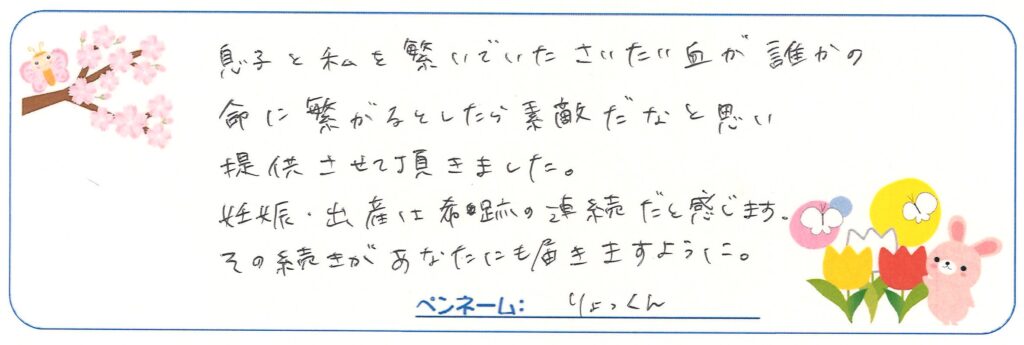 息子と私を繋いでいたさいたい血が誰かの
命に繋がるとしたら素敵だなと思い
提供させて頂きました。
妊娠・出産は希跡の連続だと感じます。
その続きがあなたにも届きますように。
ペンネーム: りょっくん